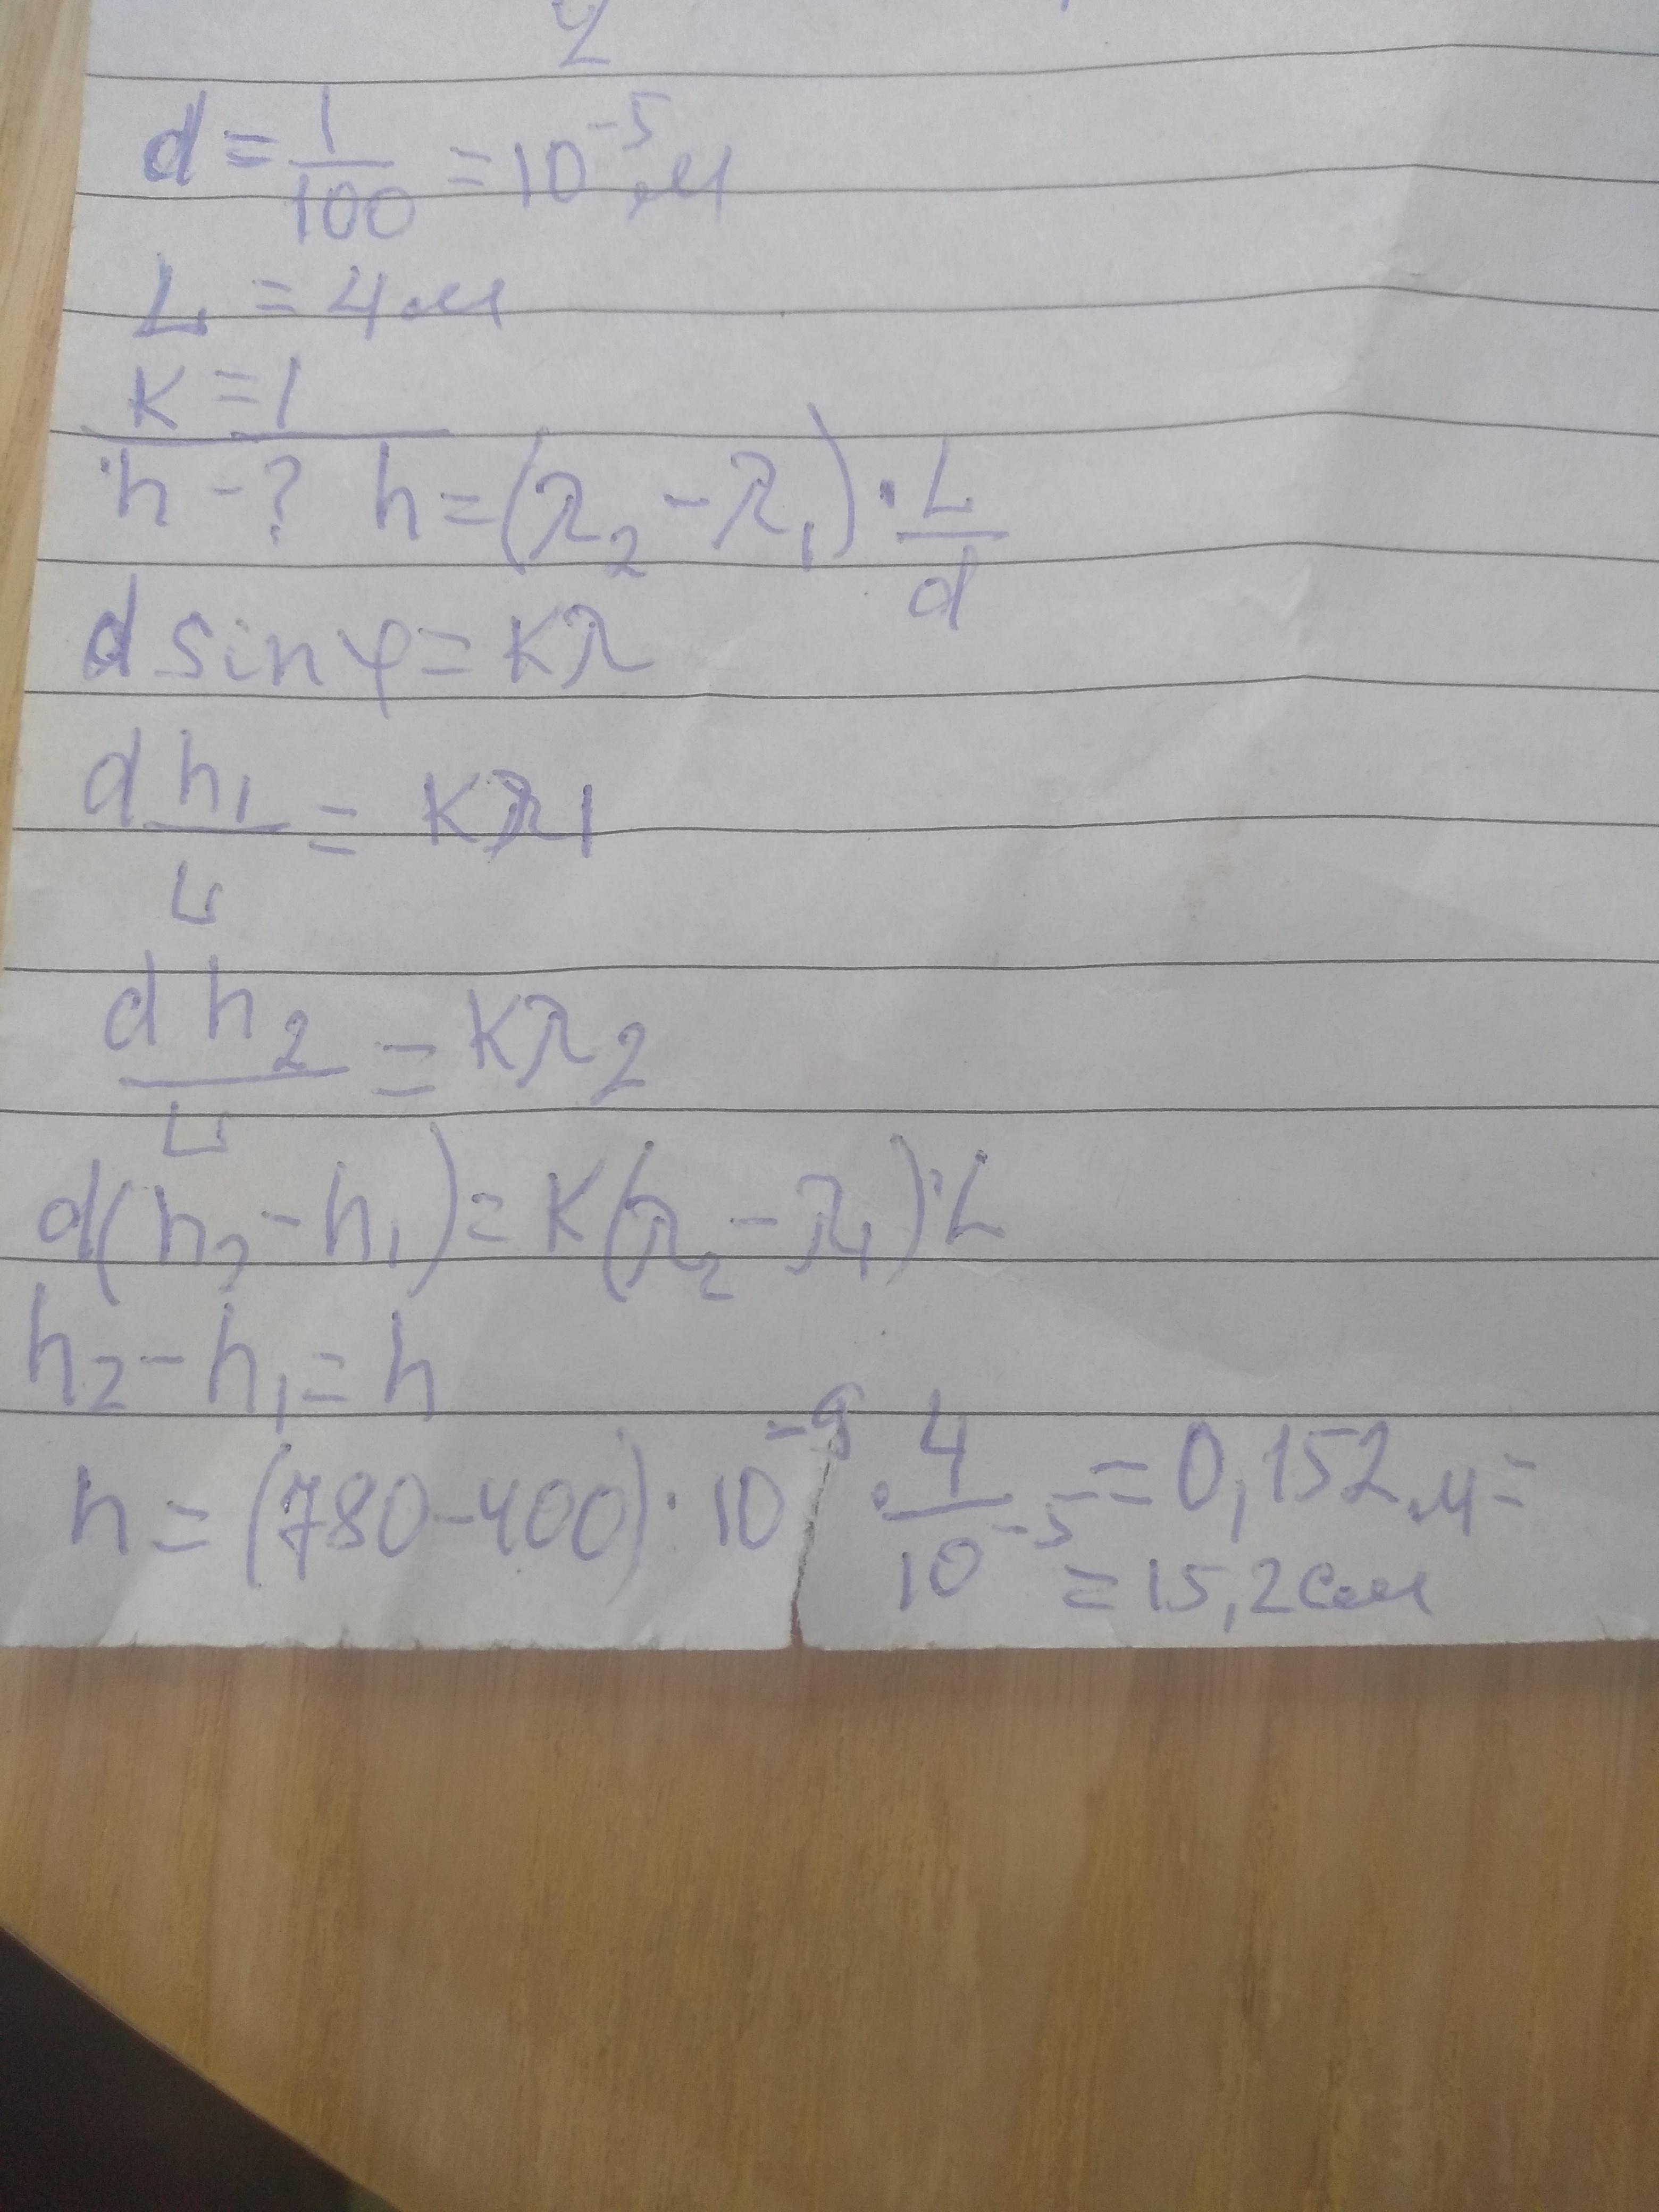 d = 1/100 = 10⁻⁵ м
L = 4 м
K = 1
h - ? h = (λ₂ - λ₁) · L/d
d sin φ = Kλ
d h₁/L = Kλ1
d h₂/L = Kλ₂
d(h₂ - h₁) = K(λ₂ - λ₁)·L
h₂ - h₁ = h
h = (780 - 400) · 10⁻⁹ · 4/10⁻⁵ = 0,152 м =
= 15,2 см